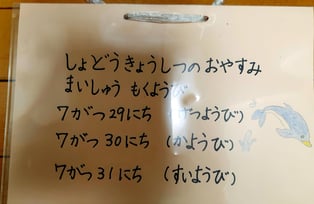 しょどうきょうしつの おやすみ
まいしゅう もくようび
7がつ 29にち
7がつ 30にち (かようび)
7がつ 31にち (すいようび)